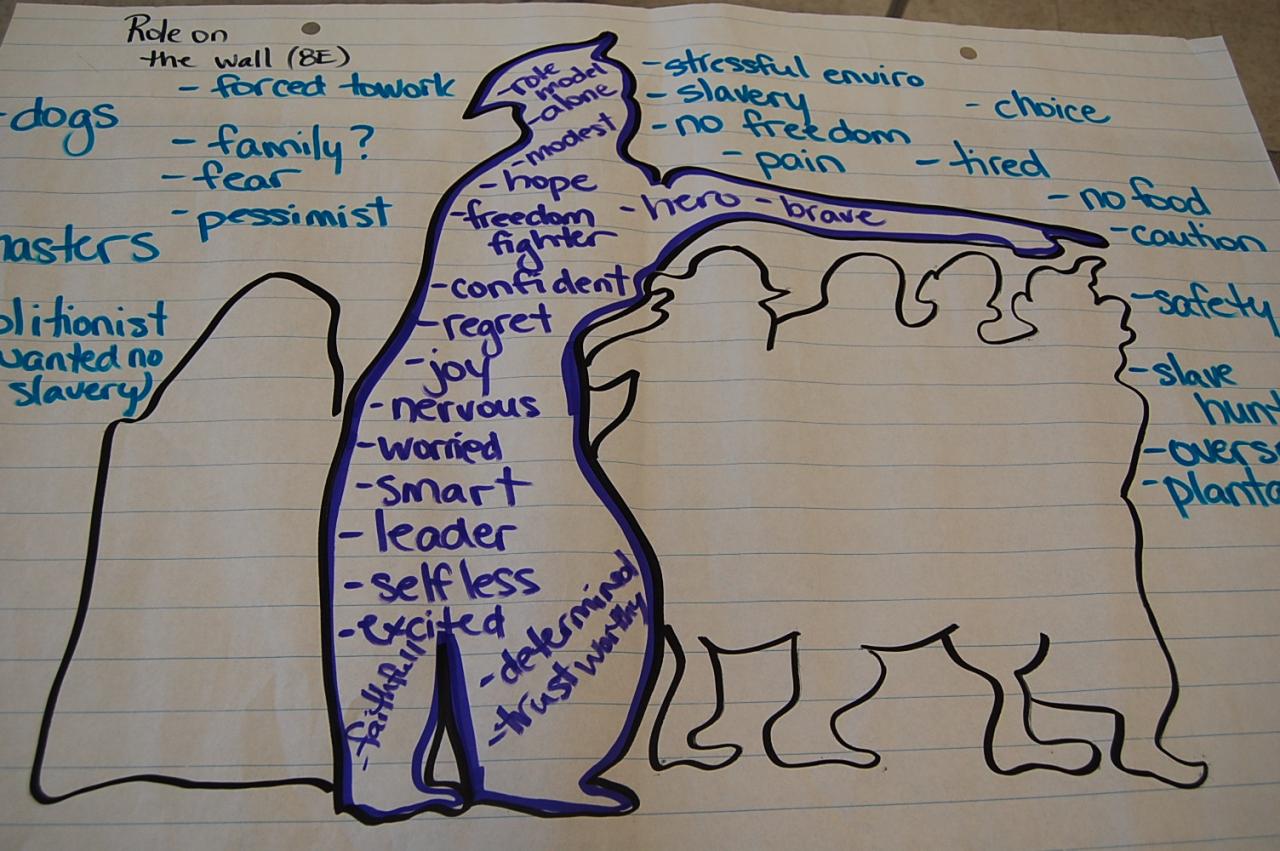 Role on
the wall (8E)
- forced to work
- dogs
- family?
- fear
- pessimist
masters
olitionist
wanted no
slavery)
- role
model
- alone
- modest
- hope
- freedom
fighter
- hero - brave
- confident
- regret
- joy
- nervous
- worried
- smart
- leader
- selfless
- excited
- faithfull
- determined
- trustworthy
- stressful enviro
- slavery
- choice
- no freedom
- pain
- tired
- no food
- caution
- safety
- slave
hunt
- overs
- planta